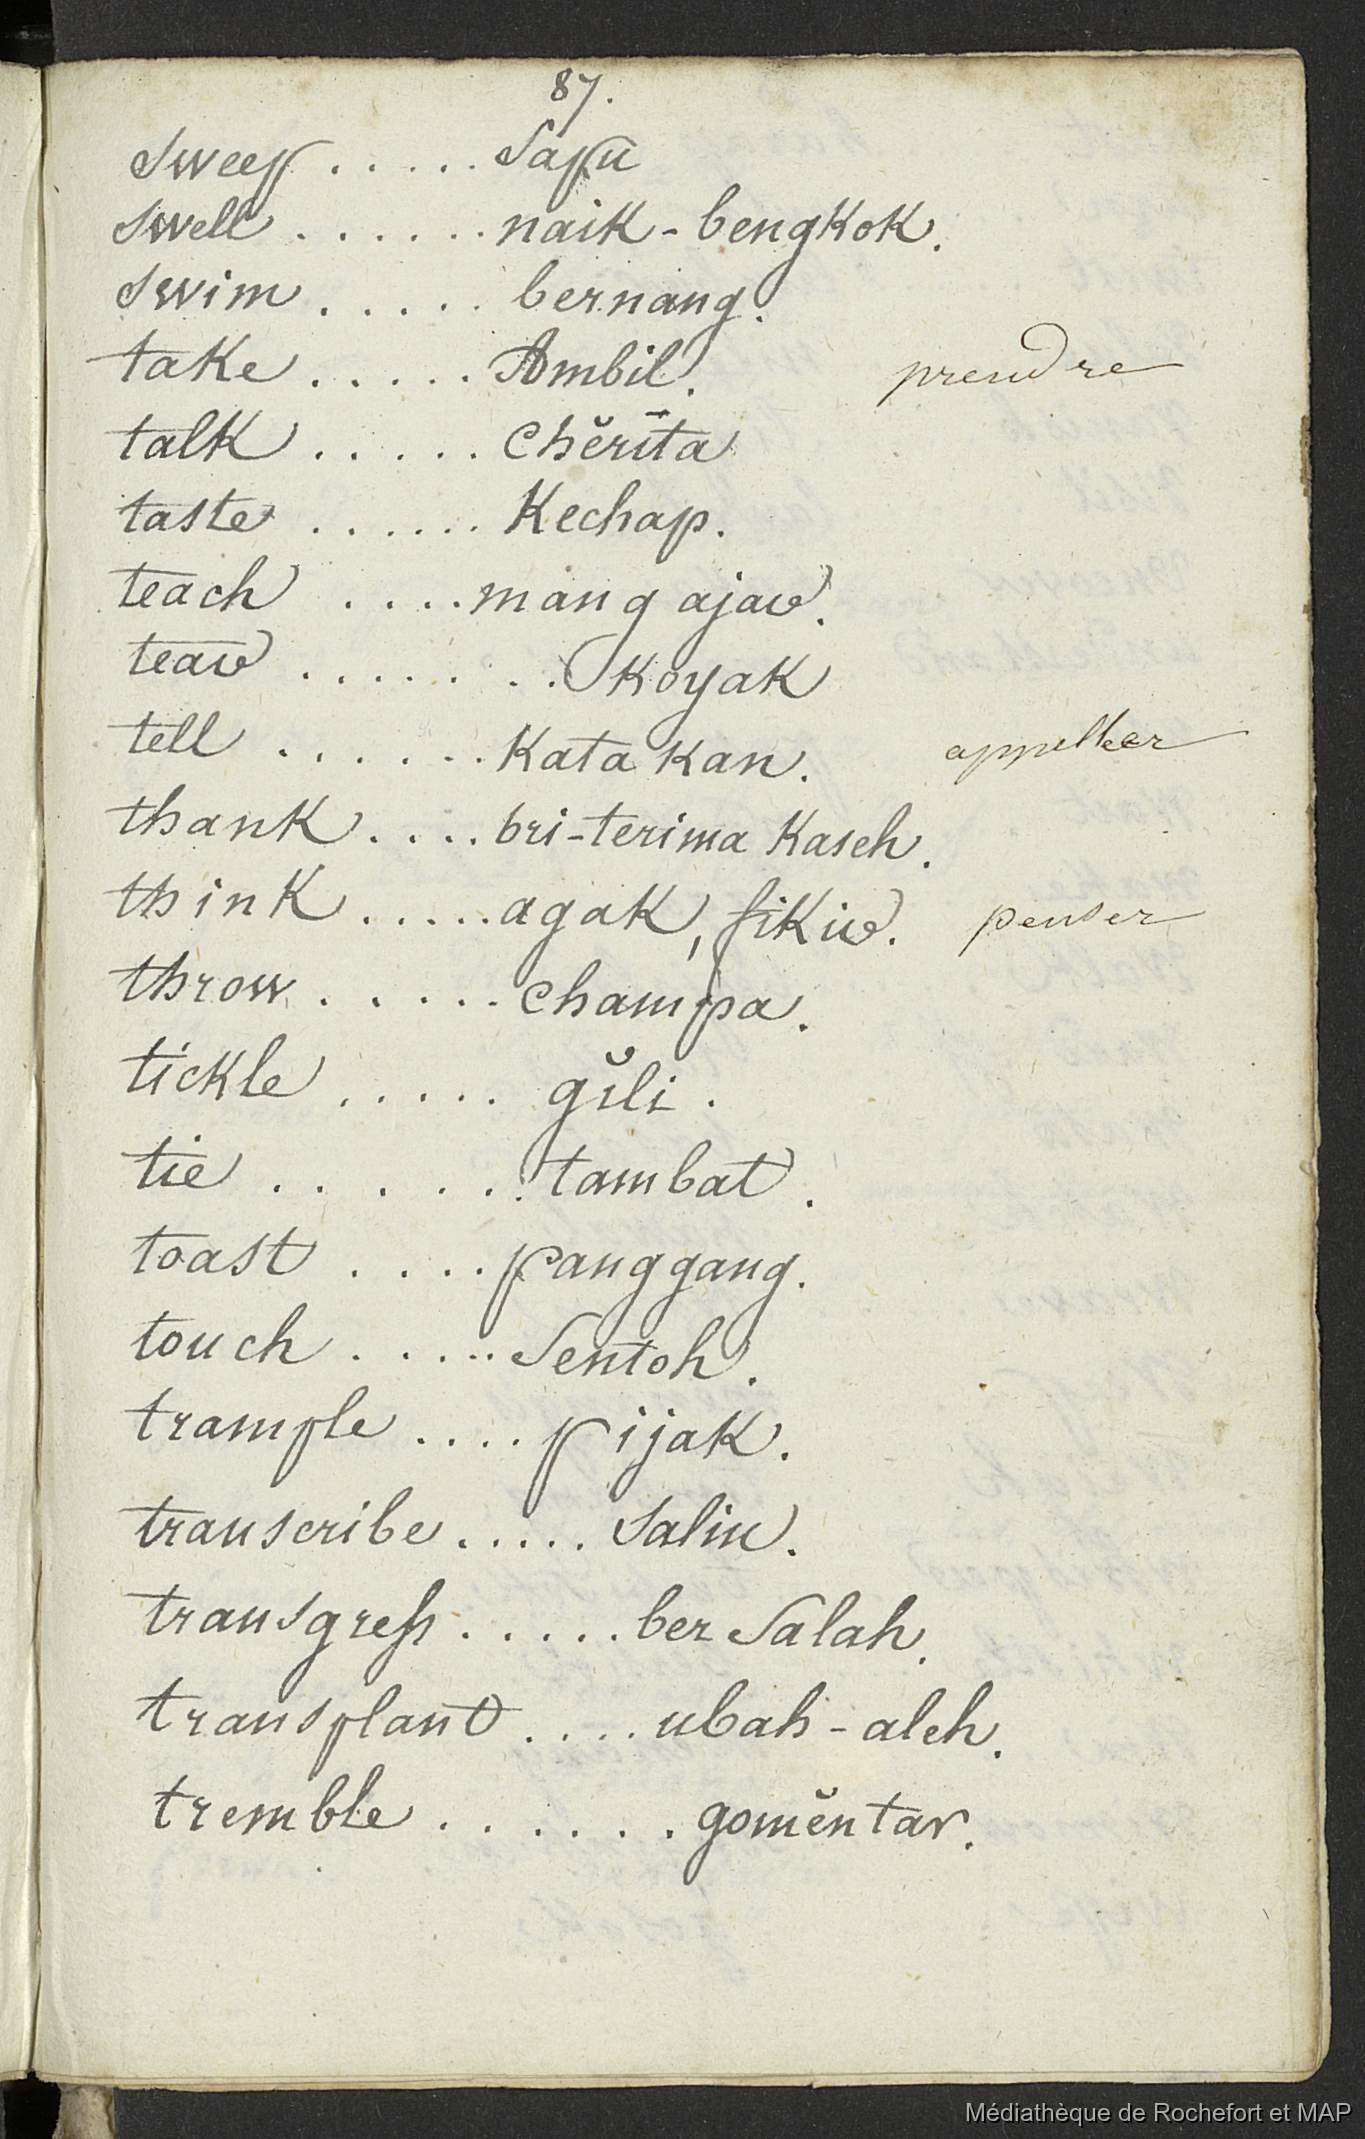 87.
sweep ..... Sapu
swell ...... naik-bengkok.
swim ..... bernang.
take ..... Ambil. prendre
talk ..... chĕrīta
taste ...... Kechap.
teach .... mang ajar.
tear ........ koyak
tell ...... Kata Kan. appeller
thank .... bri-terima Kaseh.
think ..... agak, fikir. penser
throw ..... champa.
tickle ..... gĭli.
tie ...... tambat.
toast .... panggang.
touch ..... Sentoh.
trample .... pijak.
transcribe ..... Salin.
transgress ..... ber Salah.
transplant .... ubah-aleh.
tremble ...... gomĕntar.
Médiathèque de Rochefort et MAP